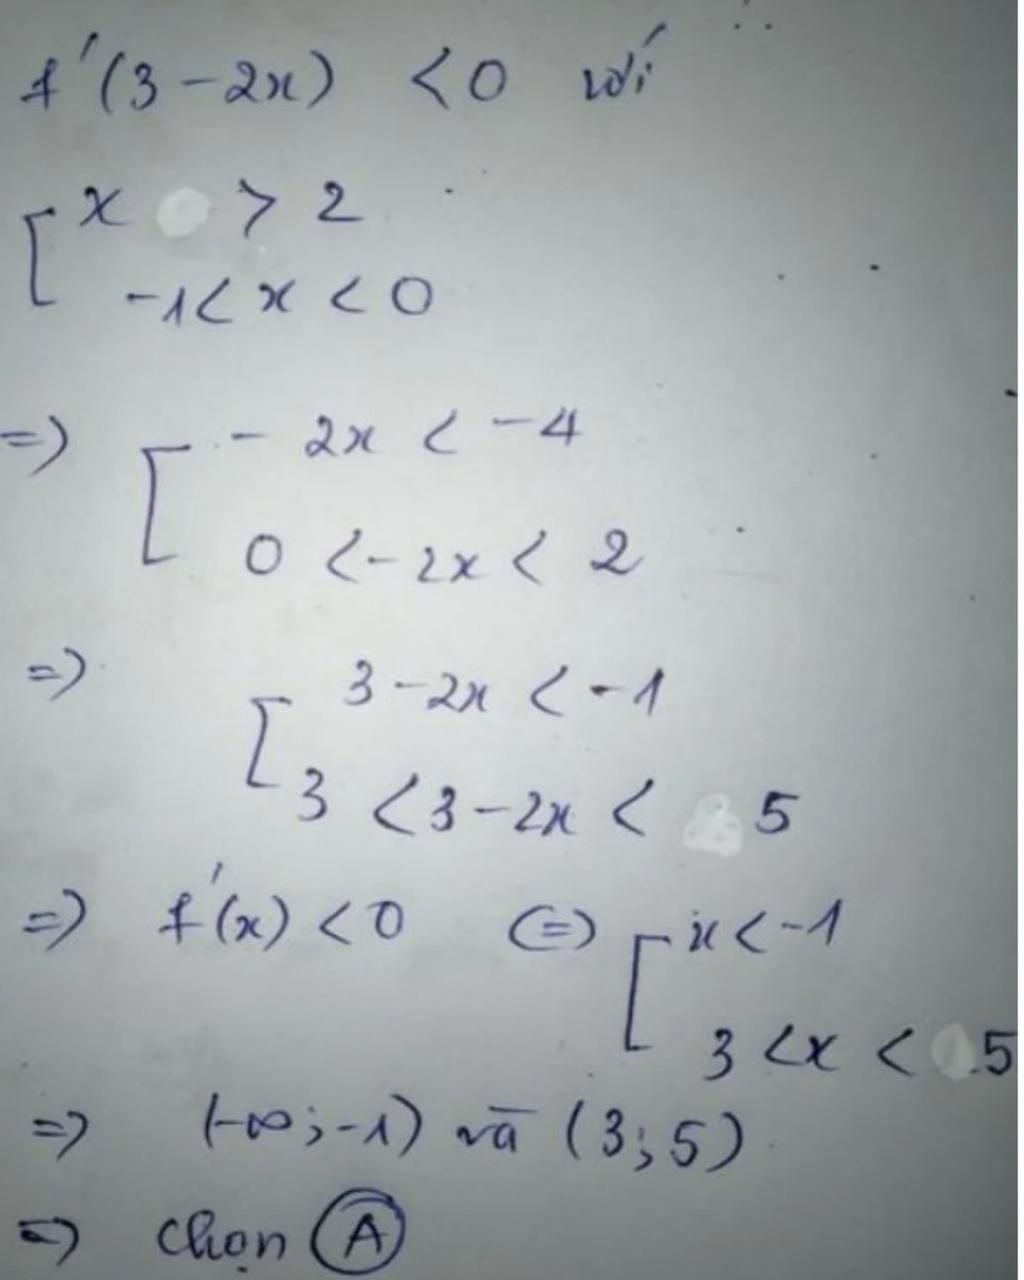 f'(3-2x) < 0 với
[ x > 2
-1 < x < 0
=> [ -2x < -4
0 < -2x < 2
=> [ 3-2x < -1
3 < 3-2x < 5
=> f'(x) < 0 (=) [ x < -1
3 < x < 5
=> (-∞; -1) và (3; 5)
=> chọn A